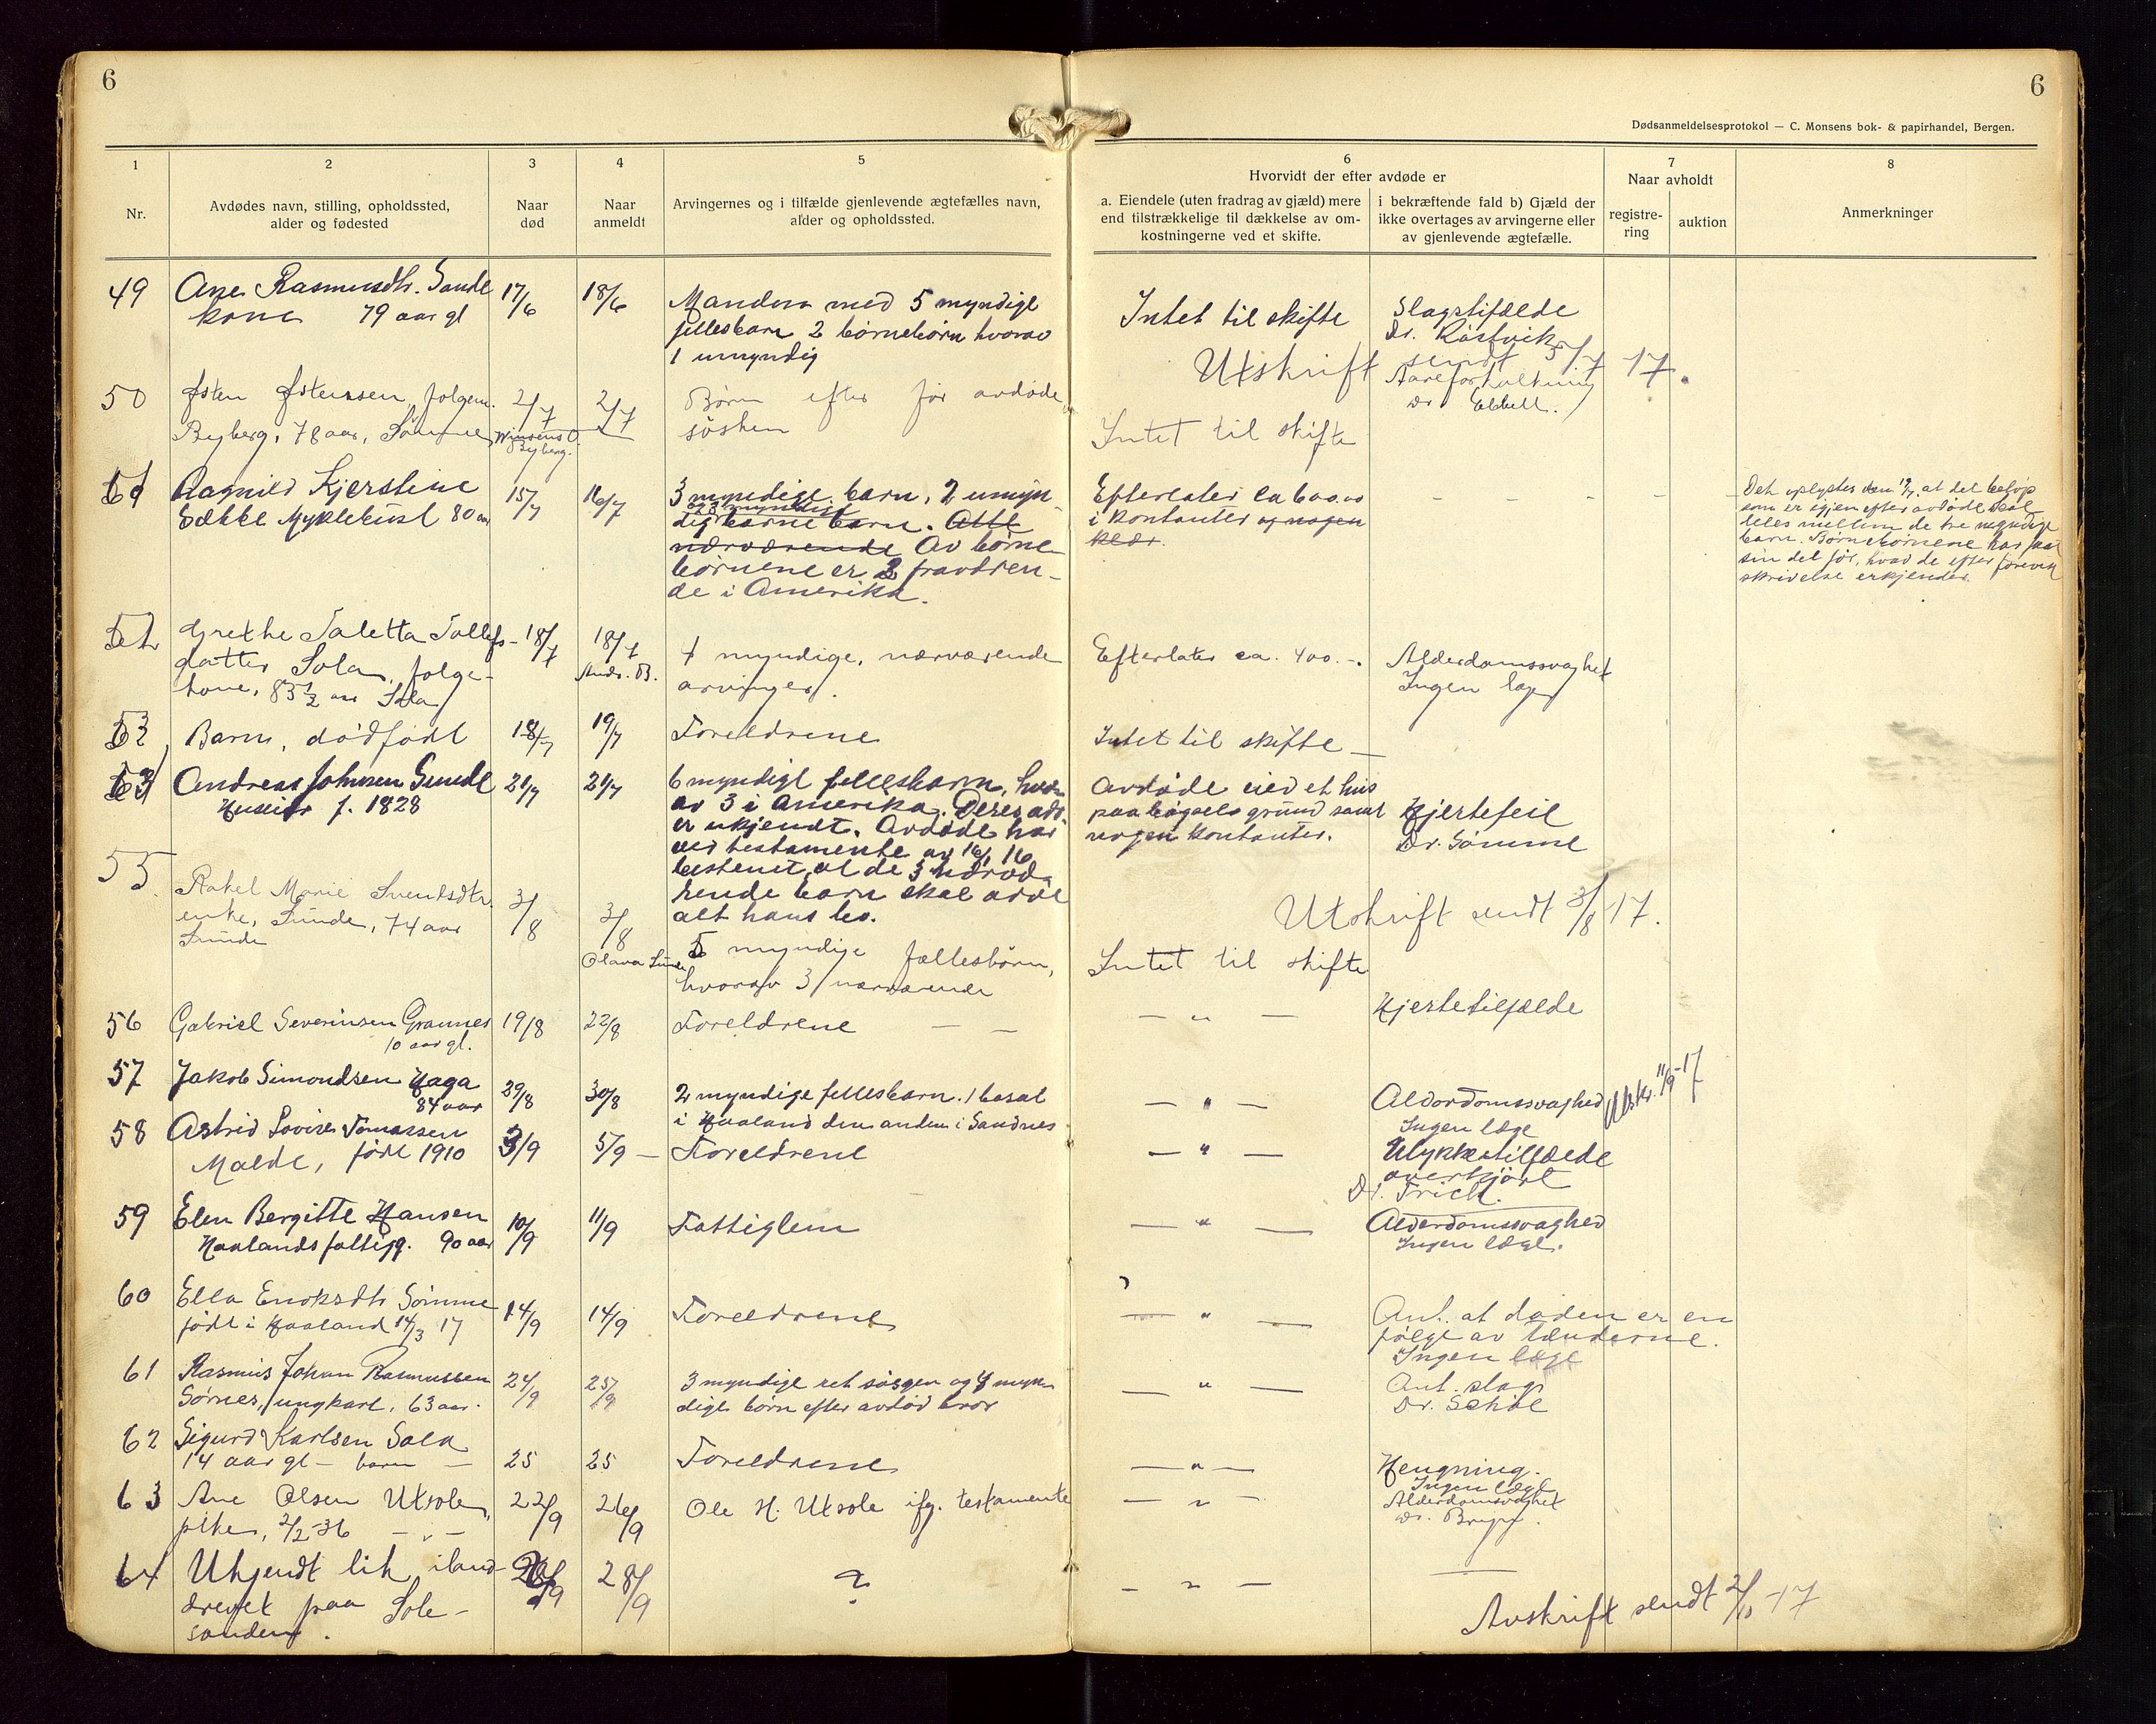 6
6
Dødsanmeldelsesprotokol — C. Monsens bok- & papirhandel, Bergen.
1
2
3
4
5
6
7
8
Nr.
Avdødes navn, stilling, opholdssted,
alder og fødested
Naar
død
Naar
anmeldt
Arvingernes og i tilfælde gjenlevende ægtefælles navn,
alder og opholdssted.
Hvorvidt der efter avdøde er
a. Eiendele (uten fradrag av gjæld) mere
end tilstrækkelige til dækkelse av om-
kostningerne ved et skifte.
i bekræftende fald b) Gjæld der
ikke overtages av arvingerne eller
av gjenlevende ægtefælle.
Naar avholdt
registre-
ring
auktion
Anmerkninger
49 Ane Rasmusdtr. Sande 17/6 18/6
kone 79 aar gl
Manden med 5 myndige
fellesbarn 2 børnebørn hvorav
1 umyndig
Intet til skifte
Slagtilfælde
Dr. Røstvik
Utskrift sendt 5/7 17.
Aareforkalkning
Dr Ebbell.
50 Østen Østensen, folgem. 2/7 2/7
Byberg, 78 aar, Sømme
Byberg.
Børn efter før avdøde
søsken
Intet til skifte
51 Ragnild Kjerstine 15/7 16/7
Bække Myklebust 80 aar
3 myndige barn, 2 umyn-
og 3 myndige
dige barnebarn. Alle
nærværende Av børne-
børnene er 2 fraværen-
de i Amerika.
Efterlater ca 600.00
i kontanter og nogen
klær.
Det oplystes den 19/7 at det beløp
som er igjen efter avdøde skal
deles mellem de tre myndige
barn. Børnebørnene har faat
sin del før, hvad de efter forevist
skrivelse erkjender.
52 Grethe Taletta Tollefs- 18/7 18/7
datter Sola, folge-
kone, 83 1/2 aar Sola
Andr. B.
4 myndige, nærværende
arvinger.
Efterlater ca. 400.-.
Alderdomssvaghet
Ingen læge
53 Barn, dødfødt 18/7 19/7 Foreldrene Intet til skifte
Andreas Johnsen Sunde 21/7 21/7
Huseier f. 1828
6 myndige fellesbarn, hvor-
av 3 i Amerika. Deres adr.
er ukjendt. Avdøde har
ved testamente av 16/1 16
bestemt, at de 3 nærvæ-
rende barn skal arve
alt hans bo.
Avdøde eied et hus
paa bøgsels grund samt
nogen kontanter.
Hjertefeil
Dr. Sømme
55 Rakel Marie Svendsdtr. 3/8 3/8
enke, Sunde, 74 aar
Sunde
Olava Sunde
5 myndige fællesbørn,
hvorav 3 nærværende
Utskrift sendt 3/8 17.
Intet til skifte
56 Gabriel Severinsen Grannes 19/8 22/8 Foreldrene — — — „ — Hjertetilfælde
10 aar gl.
57 Jakob Simondsen Haga 29/8 30/8
84 aar
2 myndige fellesbarn. 1 bosat
i Haaland den anden i Sandnes
— „ — Alderdomssvaghed
Ingen læge
Utskr. 11/9-17
58 Astrid Lovise Tomassen
Malde, født 1910 3/9 5/9 — Foreldrene — „ — Ulykkestilfælde
overkjørt
Dr. Frich.
59 Elen Bergitte Hansen 10/9 11/9 Fattiglem — „ — Alderdomssvaghed
Haalands fattigg. 90 aar
Ingen læge.
60 Ella Enoksdtr Sømme 14/9 14/9 Foreldrene — „ —
født i Haaland 14/3 17
Ant. at døden er en
følge av tænderne.
Ingen læge
61 Rasmus Johan Rasmussen 24/9 25/9
Sørnes, ungkarl, 63 aar.
3 myndige ret søsgen og 4 myn-
dige børn efter avdød bror
— „ — Ant. slag
Dr. Schøl
62 Sigurd Karlsen Sola
14 aar gl — barn — 25 25 Foreldrene — „ — Hengning.
Ingen læge
63 Ane Olsen Utsola, 22/9 26/9 Ole H. Utsole ifg. testamente — „ —
pike, 2/2-36 — „ —
Alderdomsvaghet
64 Ukjendt lik iland- 28/9 ? — „ — —
drevet paa Sole-
sanden.
Avskrift sendt 2/10-17